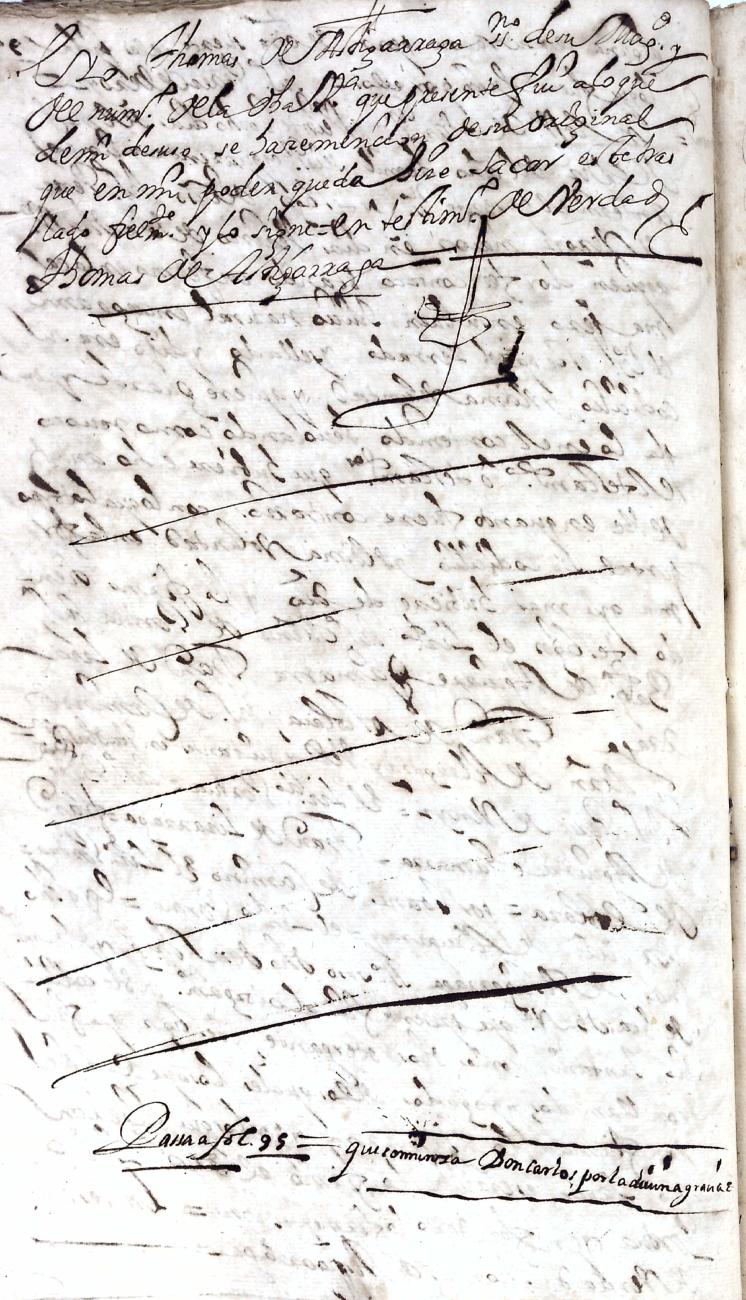 Yo Thomas de Astigarraga ss.no de su Mag.d y
del num.o de la dha V.a que presente fui a lo que
de mi desuso se haze mencion de su original
que en mi poder queda hize sacar este tras
lado fielm.te y lo signe = en testim.o de Verdad
Thomas de Astigarraga
Passa a fol. 95 = que comienza Don Carlos, por la diuina graçia &